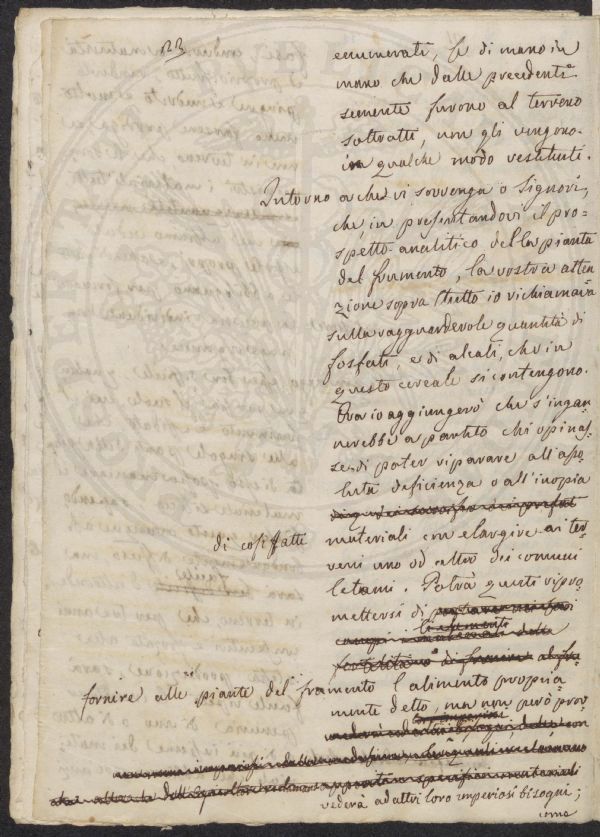 23
enumerati, se di mano in
mano che dalle precedenti
semente furono al terreno
sottratti, non gli vengono
in qualche modo restituiti.
Intorno a che vi sovvenga o Signori,
che in presentandovi il pro=
spetto analitico della pianta
del frumento, la vostra atten
zione sopra tutto io richiamava
sulla ragguardevole quantità di
fosfati, e di alcali, che in
questo cereale si contengono.
Ora io aggiungerò che s'ingan=
nerebbe a partito chi opinas=
se di poter riparare all'aso=
luta deficienza o all'inopia
di cosifatti
materiali con elargire ai ter=
reni uno od altro dei comuni
letami. Potrà questi ripro=
mettersi di
fornire alle piante del frumento l'alimento propria=
mente detto, ma non però prov
vederà ad altri loro imperiosi bisogni;
come